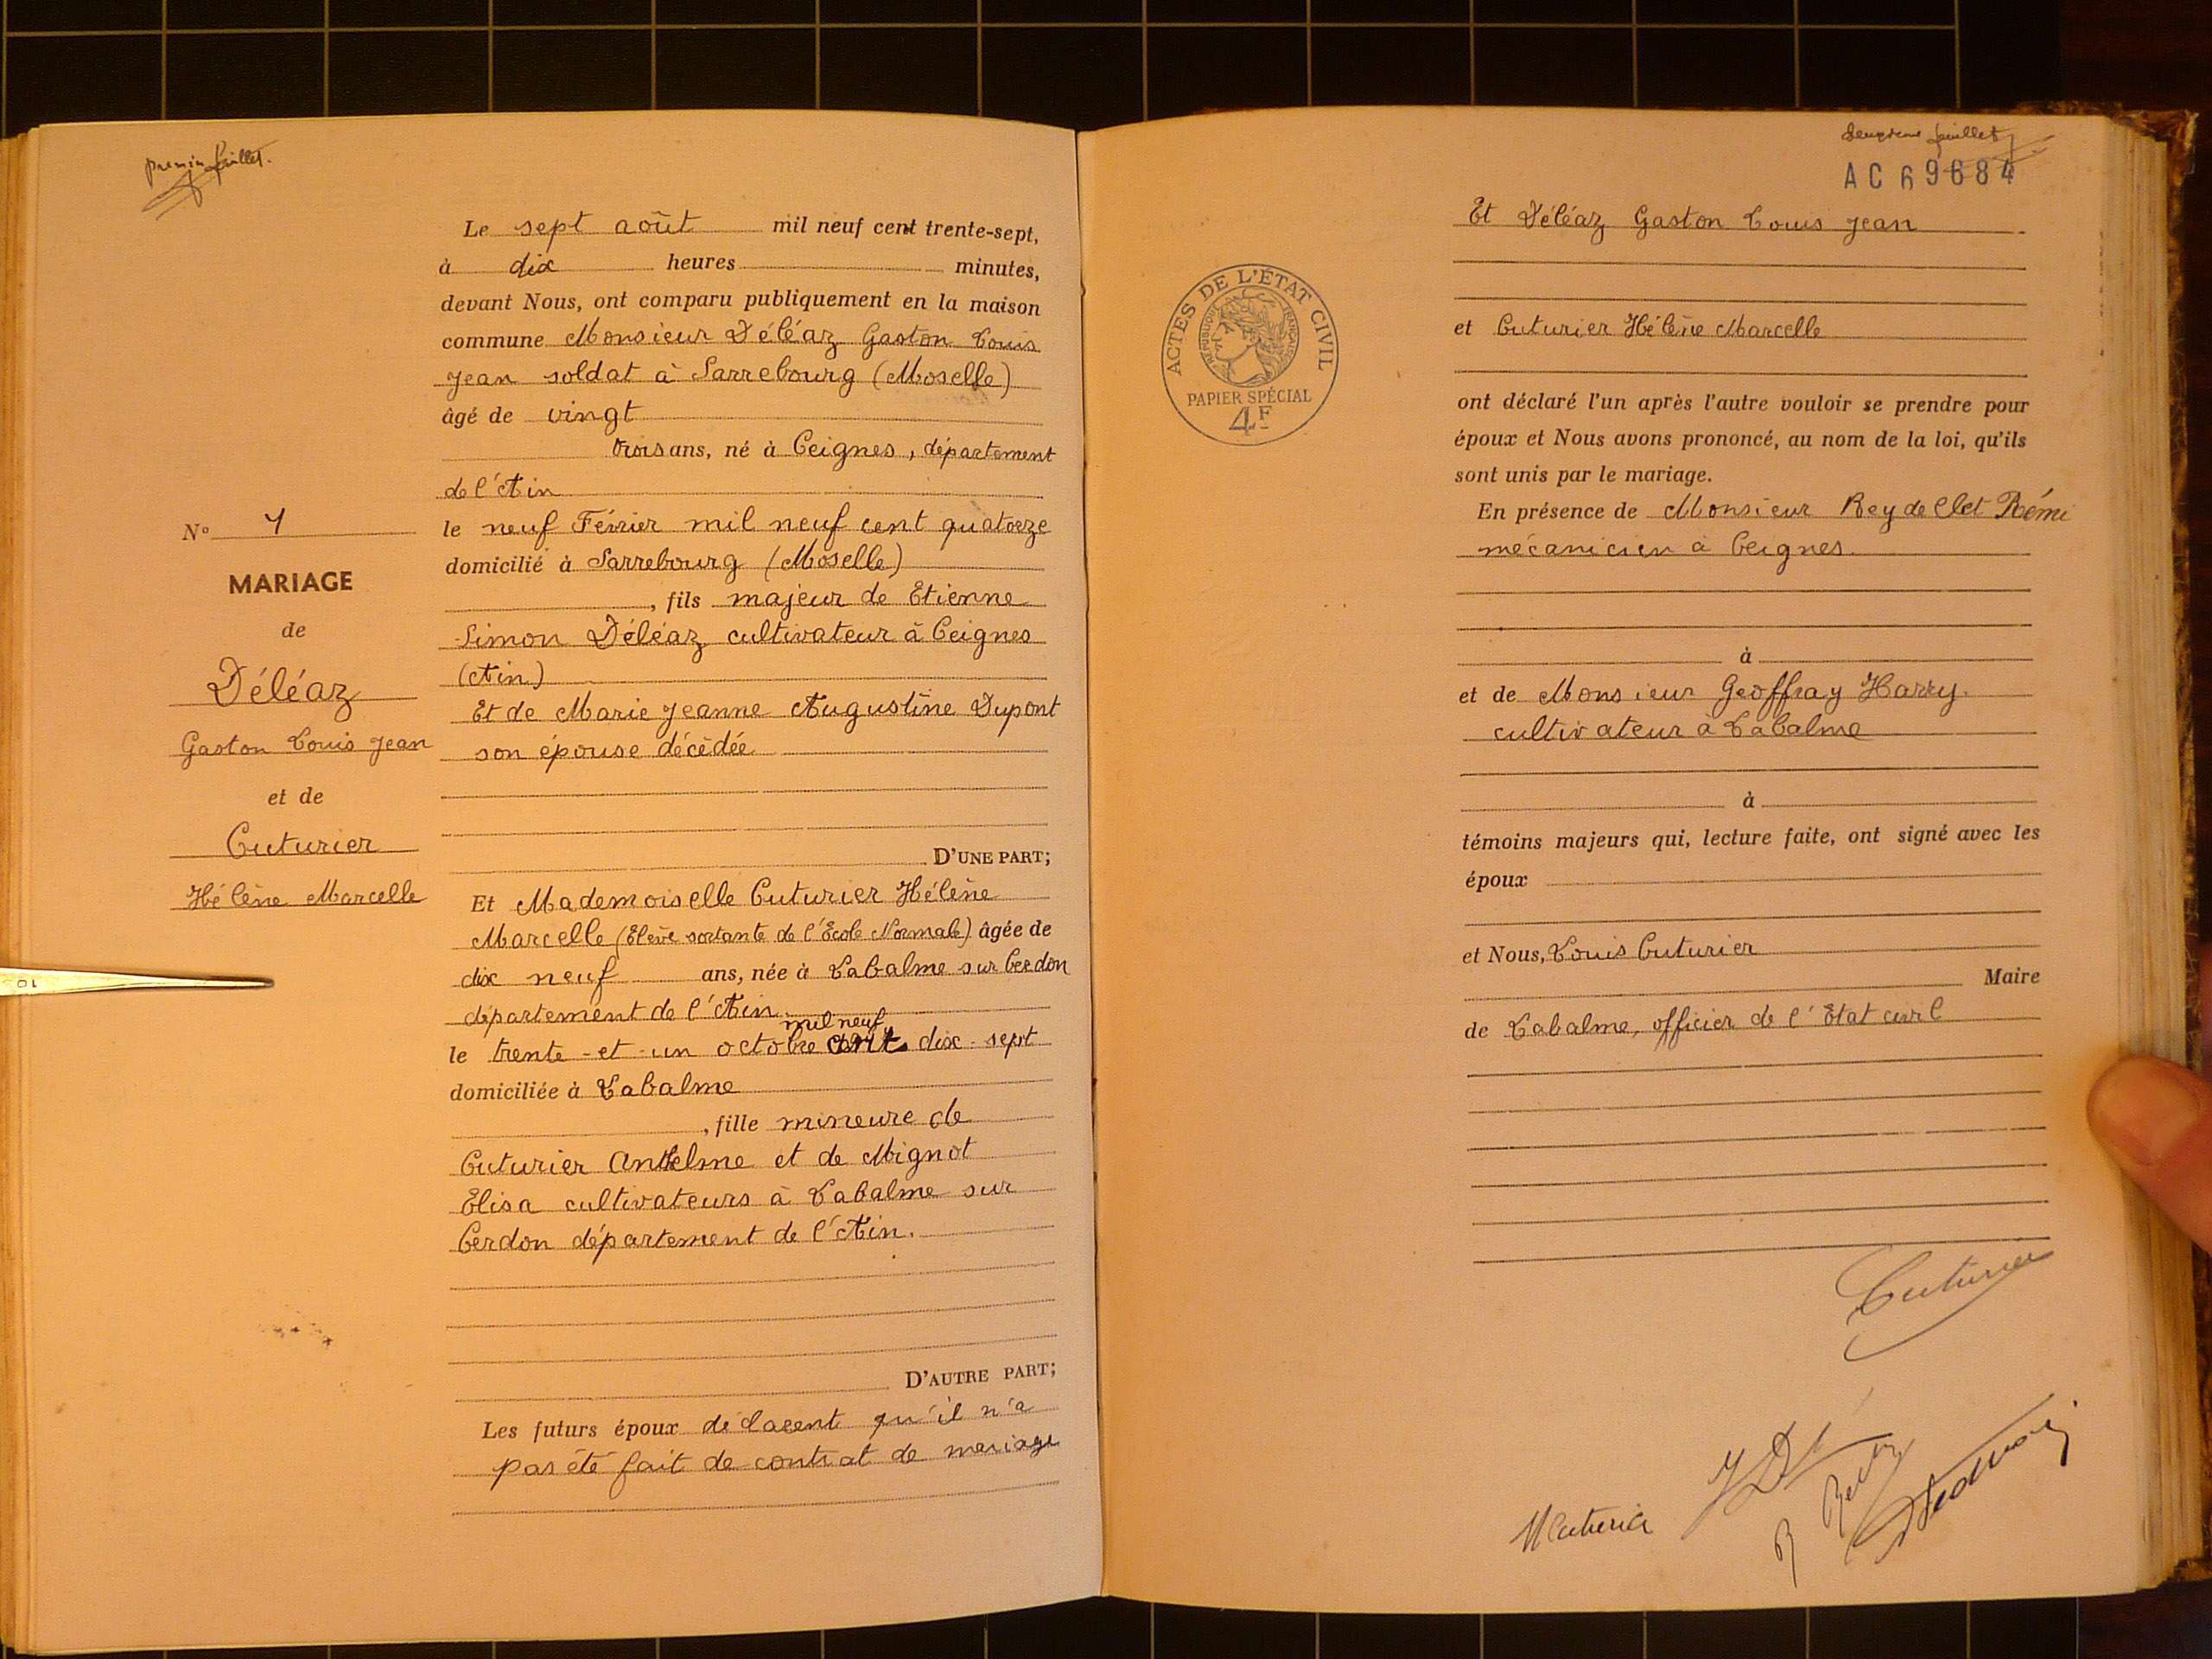 premier feuillet.
Le sept août mil neuf cent trente-sept,
à dix heures minutes,
devant Nous, ont comparu publiquement en la maison
commune Monsieur Déléaz Gaston Louis
Jean soldat à Sarrebourg (Moselle)
âgé de vingt
trois ans, né à Ceignes, département
de l'Ain
le neuf Février mil neuf cent quatorze
domicilié à Sarrebourg (Moselle)
, fils majeur de Etienne
Simon Déléaz cultivateur à Ceignes
(Ain)
Et de Marie Jeanne Augustine Dupont
son épouse décédée
D'UNE PART;
Et Mademoiselle Cuturier Hélène
Marcelle (Elève sortante de l'Ecole Normale) âgée de
dix neuf ans, née à Labalme sur Cerdon
département de l'Ain
mil neuf
le trente-et-un octobre cent dix-sept
domiciliée à Labalme
, fille mineure de
Cuturier Anthelme et de Mignot
Elisa cultivateurs à Labalme sur
Cerdon département de l'Ain.
D'AUTRE PART;
Les futurs époux déclarent qu'il n'a
pas été fait de contrat de mariage
N°
MARIAGE
de
Déléaz
Gaston Louis Jean
et de
Cuturier
Hélène Marcelle
10
deuxième feuillet
AC 69684
ACTES DE L'ÉTAT CIVIL
RÉPUBLIQUE FRANÇAISE
PAPIER SPÉCIAL
4F
Et Déléaz Gaston Louis Jean
et Cuturier Hélène Marcelle
ont déclaré l'un après l'autre vouloir se prendre pour
époux et Nous avons prononcé, au nom de la loi, qu'ils
sont unis par le mariage.
En présence de Monsieur Reydellet Rémi
mécanicien à Ceignes.
à
et de Monsieur Geoffray Harry.
cultivateur à Labalme
à
témoins majeurs qui, lecture faite, ont signé avec les
époux
et Nous, Louis Cuturier
Maire
de Labalme, officier de l'Etat civil
Cuturier